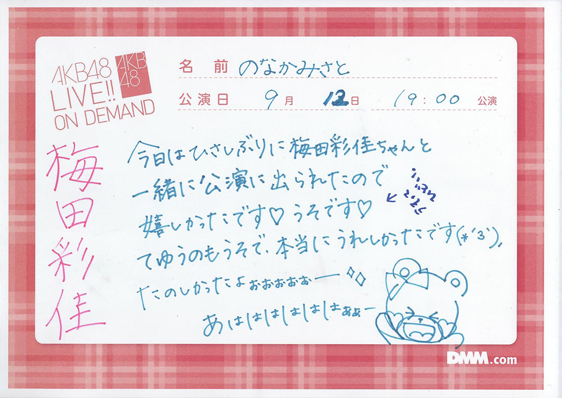 AKB48
LIVE!!
ON DEMAND
AKB
48
名前 のなかみさと
公演日 9月 12日 19:00 公演
梅田彩佳
今日はひさしぶりに梅田彩佳ちゃんと
一緒に公演に出られたので
嬉しかったです♡うそです♡
てゆうのもうそで、本当にうれしかったです(*'3')。
たのしかったよぉぉぉぉぉー
あはははははははぁぁー
DMM.com